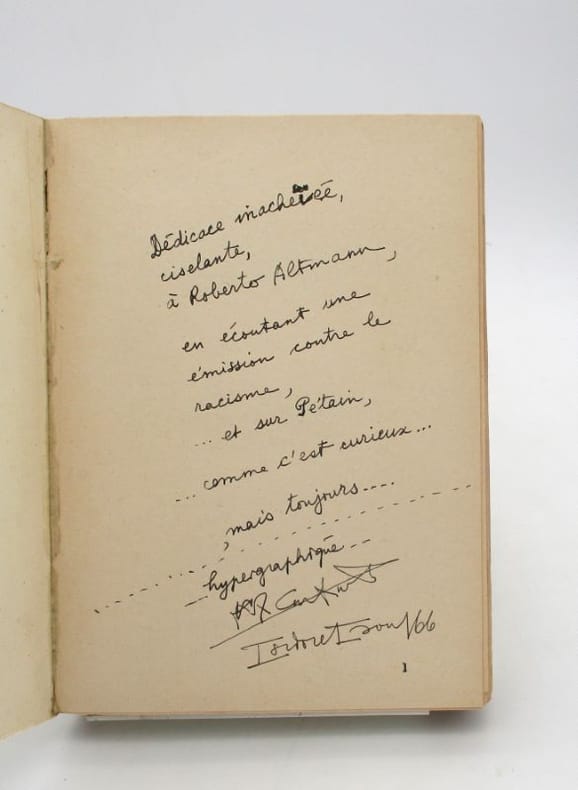 Dédicace inachevée,
ciselante,
à Roberto Altmann,
en écoutant une
émission contre le
racisme,
... et sur Pétain,
... comme c'est curieux...
, mais tojours....
hypergraphique...
Isidore Isou/66
1